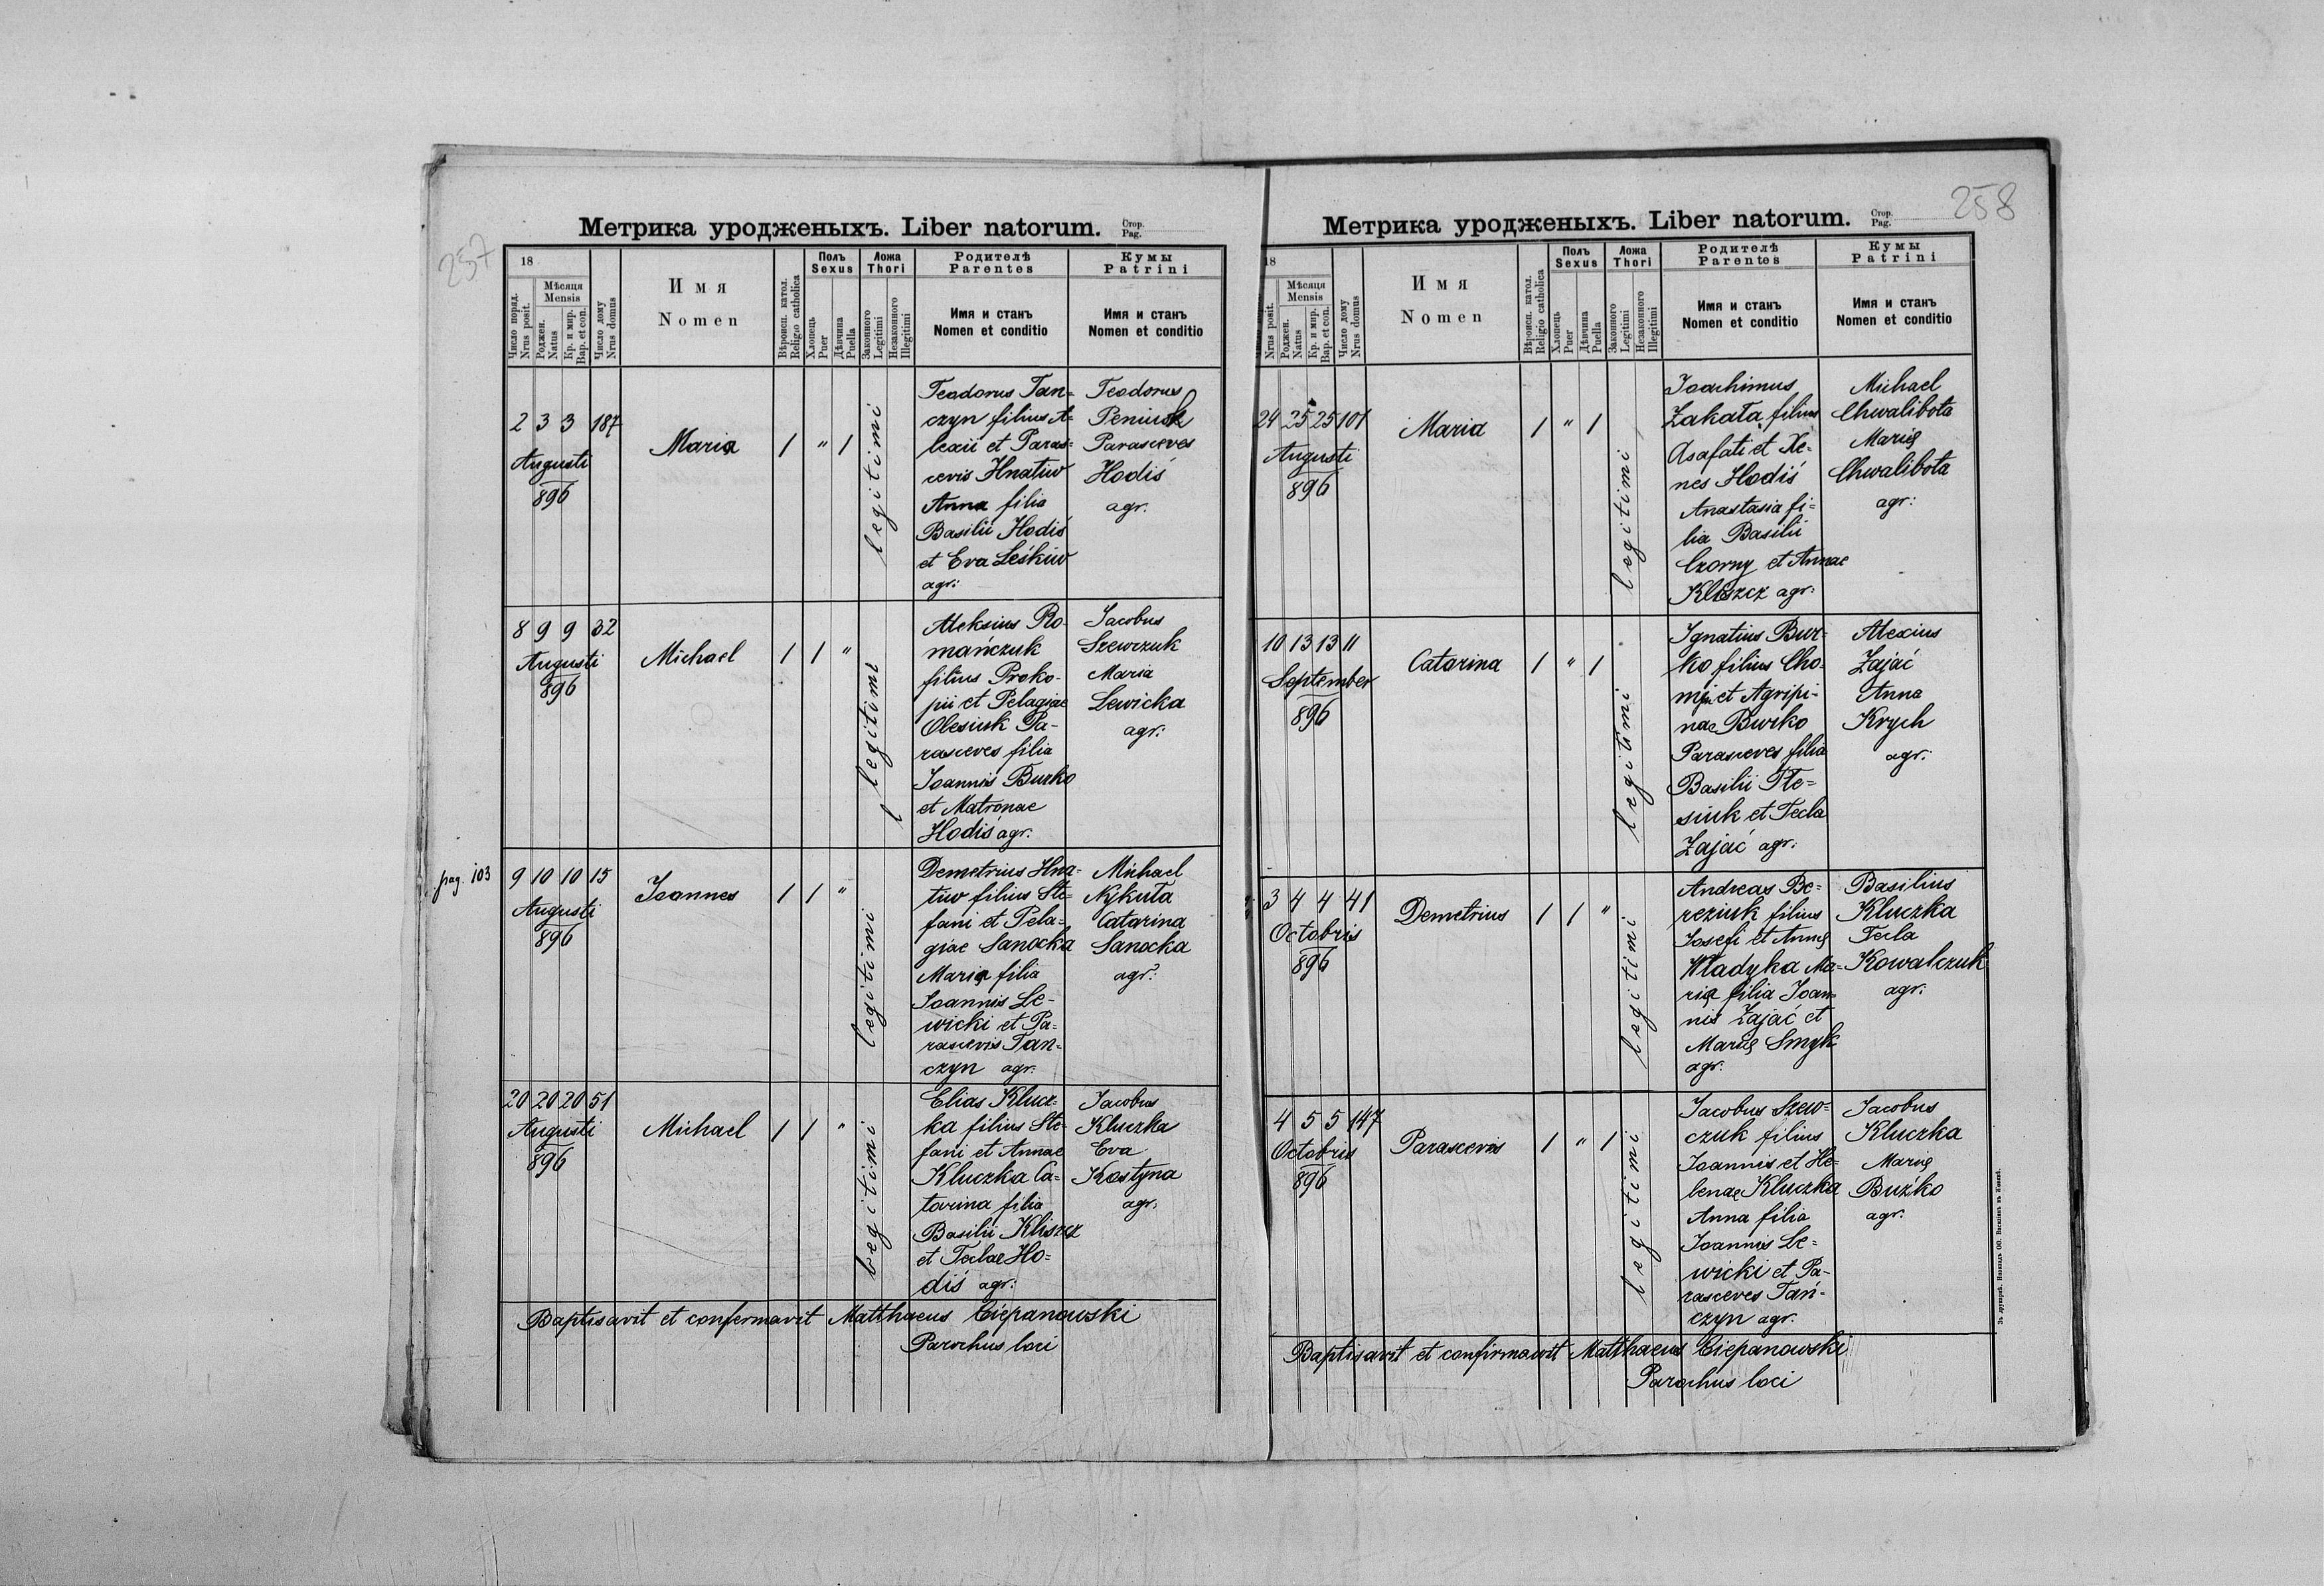 257
Метрика уродженыхъ. Liber natorum. Стор. Pag.
18
Число поряд. Nrus posit.
Мѣсяця Mensis
Роджен. Natus
Кр. и мир. Bap. et con.
Число дому Nrus domus
Имя
Nomen
Вѣроисп. катол. Religio catholica
Полъ Sexus
Хлопець Puer
Дѣвчина Puella
Ложа Thori
Законного Legitimi
Незаконного Illegitimi
Родителѣ Parentes
Имя и станъ
Nomen et conditio
Кумы Patrini
Имя и станъ
Nomen et conditio
2 3 3 187
Augusti
896
Maria
1 " 1
legitimi
Teodorus Tan=
czyn filius A=
lexii et Paras=
cevis Hnatiw
Anna filia
Basilii Hodiś
et Eva Leśkiw
agr:
Teodorus
Peniuk
Parasceves
Hodiś
agr.
8 9 9 32
Augusti
896
Michael
1 1 "
legitimi
Aleksius Ro-
mańczuk
filius Proko-
pii et Pelagiae
Olesiuk Pa-
rasceves filia
Joannis Burko
et Matronae
Hodiś agr.
Jacobus
Szewczuk
Maria
Lewicka
agr:
pag. 103
9 10 10 15
Augusti
896
Joannes
1 1 "
legitimi
Demetrius Hna-
tiw filius Ste-
fani et Pela-
giae Sanocka
Maria filia
Joannis Le-
wicki et Pa-
rascevis Tan-
czyn agr.
Michael
Nykuta
Catarina
Sanocka
agr:
20 20 20 51
Augusti
896
Michael
1 1 "
legitimi
Elias Klucz-
ka filius Ste-
fani et Annae
Kluczka Ca-
tarina filia
Basilii Kliszcz
et Teclae Ho-
diś agr:
Jacobus
Kluczka
Eva
Kostyna
agr.
Baptisavit et confermavit Matthaeus Ciepanowski
Parochus loci
258
Метрика уродженыхъ. Liber natorum. Стор. Pag.
18
Nrus posit.
Мѣсяця Mensis
Роджен. Natus
Кр. и мир. Bap. et con.
Число дому Nrus domus
Имя
Nomen
Вѣроисп. катол. Religio catholica
Полъ Sexus
Хлопець Puer
Дѣвчина Puella
Ложа Thori
Законного Legitimi
Незаконного Illegitimi
Родителѣ Parentes
Имя и станъ
Nomen et conditio
Кумы Patrini
Имя и станъ
Nomen et conditio
24 25 25 101
Augusti
896
Maria
1 " 1
legitimi
Joachimus
Zakała filius
Asafati et Xe-
nes Hodiś
Anastasia fi-
lia Basilii
Czorny et Annae
Kliszcz agr:
Michael
Chwalibota
Marię
Chwalibota
agr:
10 13 13 11
September
896
Catarina
1 " 1
legitimi
Ignatius Bur-
ko filius Cho-
et Agripi-
nae Burko
Parasceves filia
Basilii Ple-
siuk et Tecla
Zając agr:
Alexius
Zając
Anna
Krych
agr:
3 4 4 41
Octobris
896
Demetrius
1 1 "
legitimi
Andreas Be=
reziuk filius
Josefi et Annę
Władyka Ma-
ria filia Joan-
nis Zając et
Marię Smyk
agr.
Basilius
Kluczka
Tecla
Kowalczuk
agr:
4 5 5 147
Octobris
896
Parascevis
1 " 1
legitimi
Jacobus Szew-
czuk filius
Joannis et He-
lenae Kluczka
Anna filia
Joannis Le-
wicki et Pa-
rasceves Tań-
czyn agr.
Jacobus
Kluczka
Marię
Buźko
agr.
Baptisavit et confirmavit Matthaeus Ciepanowski
Parochus loci